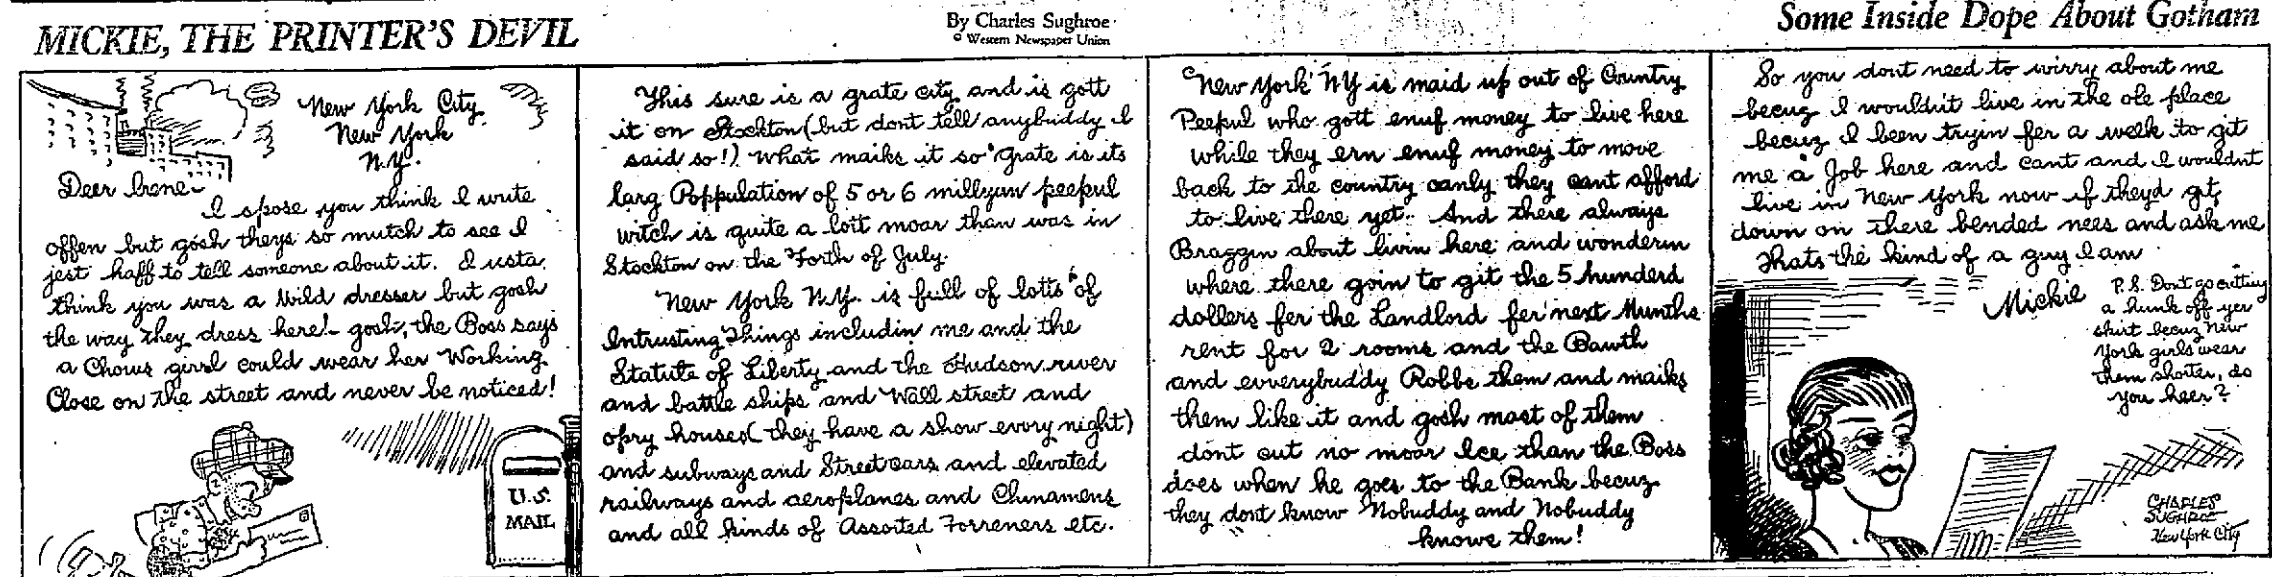 MICKIE, THE PRINTER'S DEVIL
By Charles Sughroe
© Western Newspaper Union
Some Inside Dope About Gotham
New York City
New York
N.Y.
Deer Irene—
I spose you think I write
offen but gosh theys so mutch to see I
jest haff to tell someone about it. I usta
think you was a Wild dresser but gosh
the way they dress here!- gosh, the Boss says
a Chorus girrl could wear her Working
Close on the street and never be noticed!
U.S.
MAIL
This sure is a grate city and is gott
it on Stockton (but dont tell anybuddy I
said so!) What maiks it so grate is its
larg Poppulation of 5 or 6 millyun peepul
witch is quite a lott moar than was in
Stockton on the Forth of July.
New York N.Y. is full of lotts of
Intrusting Things includin me and the
Statute of Liberty and the Hudson river
and battle ships and Wall street and
opry houses (they have a show every night)
and subways and Street cars and elevated
railways and aeroplanes and Chinamens
and all kinds of Assorted Forreners etc.
New York NY is maid up out of Country
Peepul who gott enuf money to live here
while they ern enuf money to move
back to the country oanly they cant afford
to live there yet. And there always
Braggin about livin here and wonderin
where there goin to git the 5 hunderd
dollers fer the Landlord fer next Munths
rent for 2 rooms and the Bawth
and evverybuddy Robbs them and maiks
them like it and gosh most of them
dont cut no moar Ice than the Boss
does when he goes to the Bank becuz
they dont know Nobuddy and Nobuddy
knows them!
So you dont need to wirry about me
becuz I wouldnt live in the ole place
becuz I been tryin fer a week to git
me a Job here and cant and I wouldnt
live in New York now if theyd git
down on there bended nees and ask me
Thats the kind of a guy I am
Mickie
P.S. Dont go cutting
a hunk off yer
skirt becuz New
York girls wear
them shorter, do
you heer?
CHARLES
SUGHROE
New York City